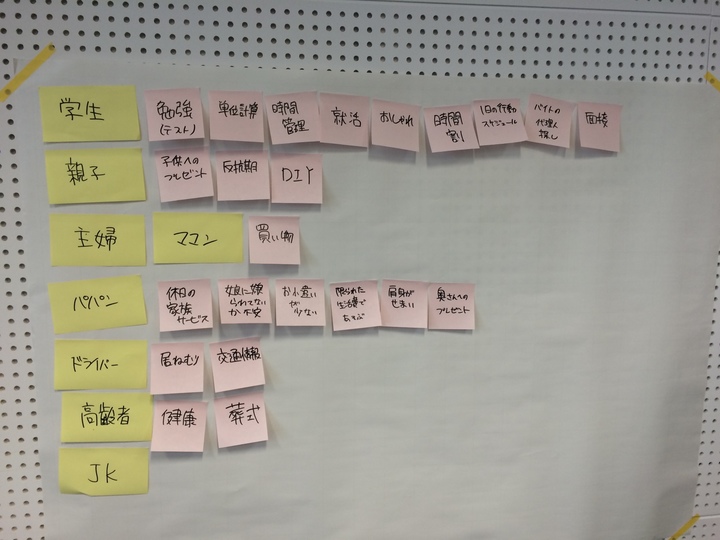 学生
勉強
(テスト)
単位計算
時間
管理
就活
おしゃれ
時間
割
1日の行動
スケジュール
バイトの
代理人
探し
面接
親子
子供への
プレゼント
反抗期
DIY
主婦
ママン
買い物
パパン
休日の
家族
サービス
娘に嫌
られてない
か不安
お小遣い
が
少ない
限られた
生活費で
あそぶ
肩身が
せまい
奥さんへの
プレゼント
ドライバー
居ねむり
交通情報
高齢者
健康
葬式
JK